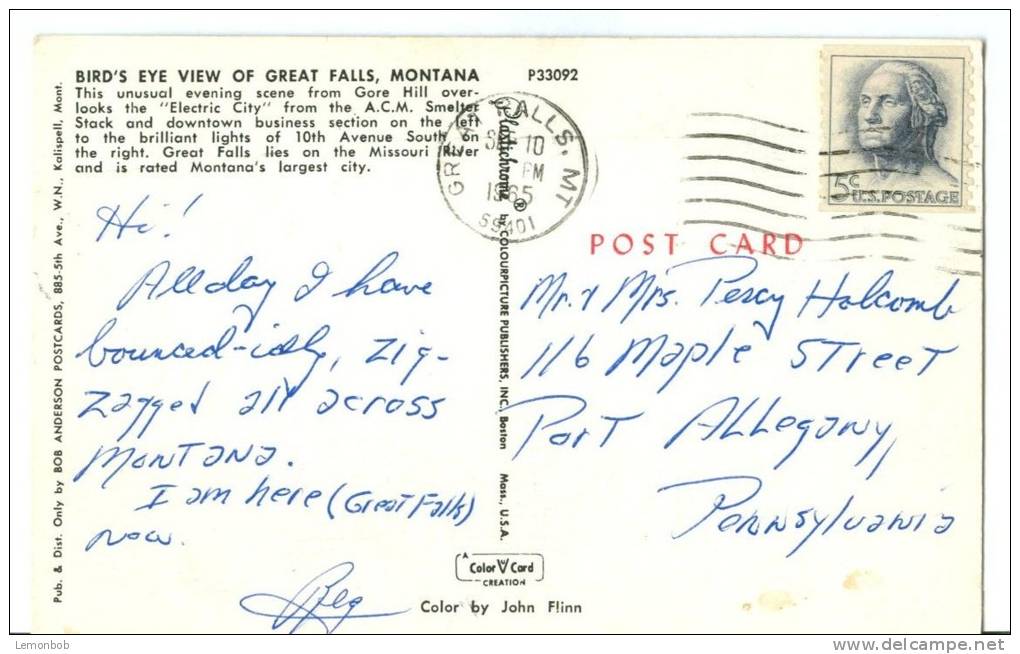 BIRD'S EYE VIEW OF GREAT FALLS, MONTANA
P33092
This unusual evening scene from Gore Hill over-
looks the "Electric City" from the A.C.M. Smelter
Stack and downtown business section on the left
to the brilliant lights of 10th Avenue South on
the right. Great Falls lies on the Missouri River
and is rated Montana's largest city.
GREAT FALLS, MT
10
PM
1965
59401
5c
U.S. POSTAGE
POST CARD
Pub. & Dist. Only by BOB ANDERSON POSTCARDS, 885-5th Ave., W.N., Kalispell, Mont.
Plastichrome ® by COLOURPICTURE PUBLISHERS, INC., Boston Mass., U.S.A.
Hi!
All day I have
bounced-idly, zig-
zagged all across
Montana.
I am here (Great Falls)
now.
Reg
Mr. & Mrs. Percy Holcomb
116 Maple Street
Port Allegany,
Pennsylvania
A
Color Card
CREATION
Color by John Flinn
Lemonbob
delcampe.net